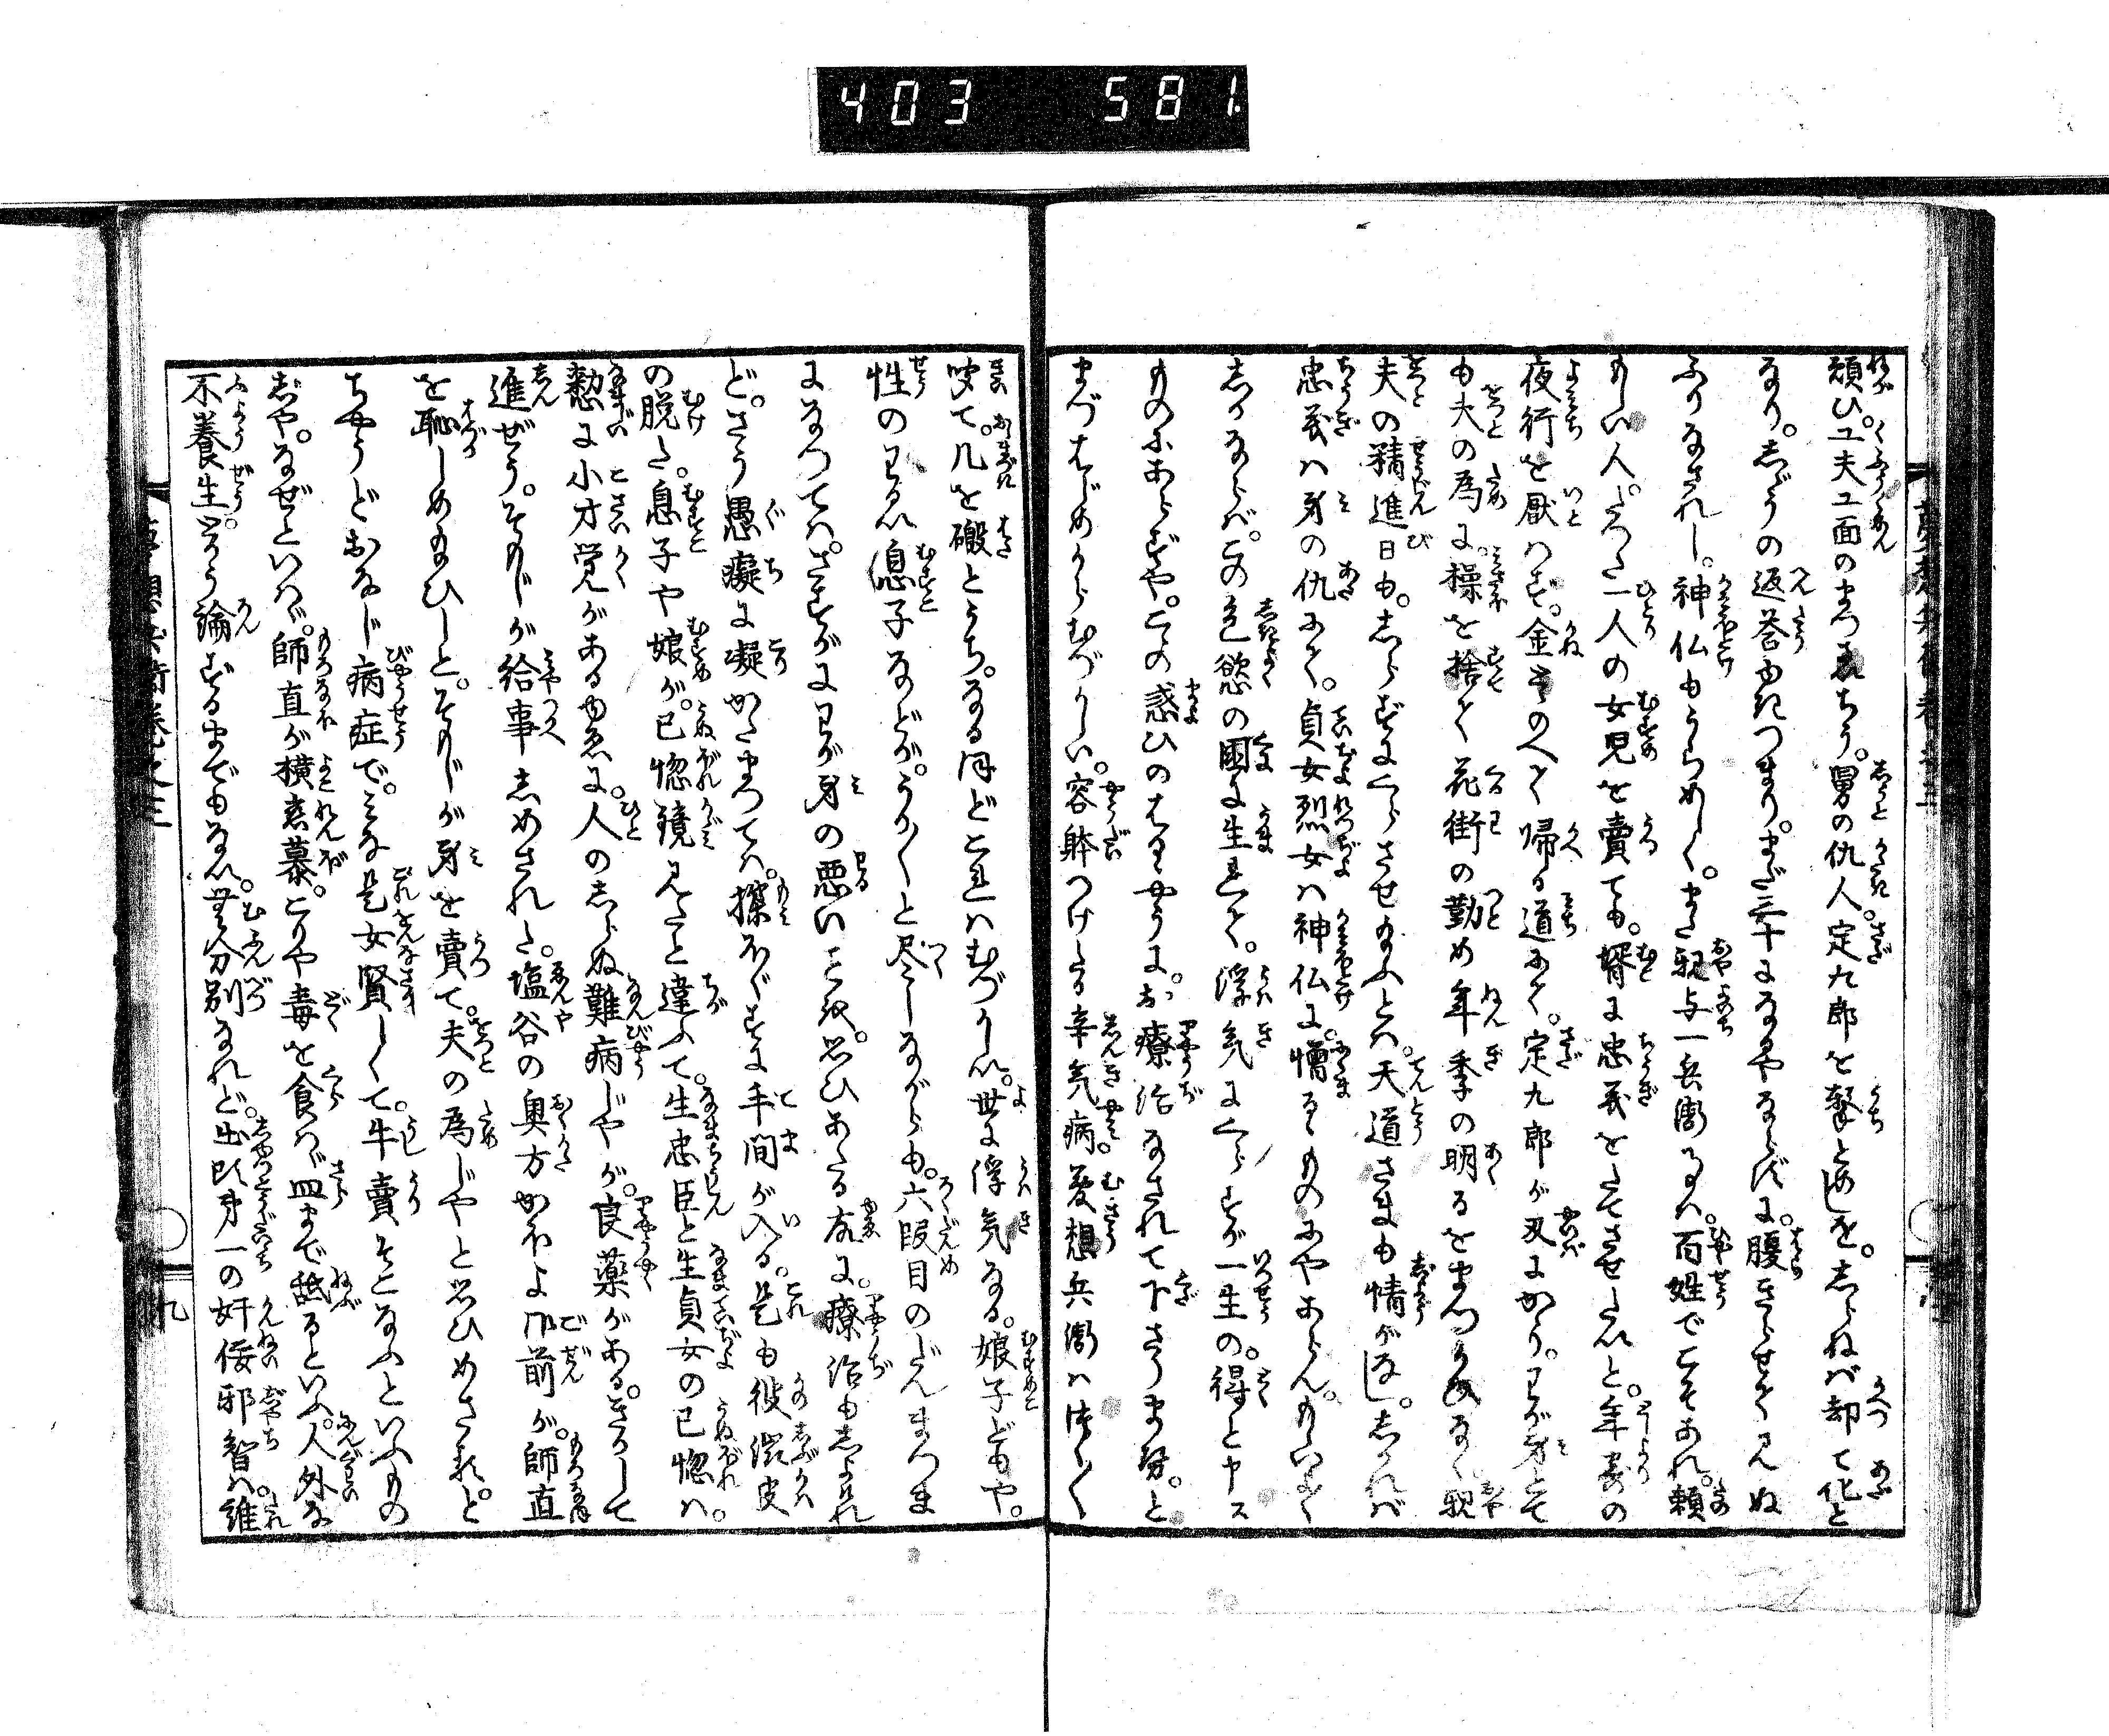 403 581
願ひ。工夫工面のまつ表ちう。舅の仇人。定九郎を撃とめしを。しらねば却て化と
なり。しどうの返答も紀つまり。まだ三十になるやならずに。腹きらせて見ぬ
ふりなされし。神仏もうらめしく。また親与一兵衛るハ。百姓でこそあれ。頼
もしい人。たつた一人の女児を賣ても。婿に忠義をたてさせたいと。年寄の
夜行を厭はず。金とゝのへて帰る道にて。定九郎が刃にかゝり。わが身とて
も夫の為に。操を捨て花街の勤め年季の明るをまつかひなく親
夫の精進日も。しらずにくらさせ給ふとハ。天道さまも情がなし。しかれば
忠義ハ身の仇にて。貞女烈女ハ神仏に。憎るゝものにやあらん。もしいよ〱
しかならバ。この色慾の國に生れて。浮気にくらすが一生の。得とヤス
ものにあらずや。この惑ひのはるやうに。お療治なされて下さりませ。と
まづはじめからむづかしい。容躰つけたる辛気病。夢想兵衛ハつく〲
咲て。几を礑とうち。なるほどこれハむづかしい。世に浮気なる。娘子どもや。
性のわるい息子などが。うか〱と尽しながらも。六段目のだんまつま
になつてハ。さすがにわが身の悪いことを。思ひあたる故に。療治もしよけれ
ど。さう愚癡に凝かたまつてハ。揉ほぐすに手間が入る。是も彼渋皮
の脱た。息子や娘が。己惚鏡見たと違ふて。生忠臣と生貞女の己惚ハ。
憖に小才覚がある由ゑに。人のしらぬ難病じやが。良薬がある。きかして
進ぜう。そもじが給事しめされた。塩谷の奥方かほよ御前が。師直
を恥しめ給ひしと。そもじが身を賣て。夫の為じやと思ひめさるゝと
ちやうどおなじ病症で。みな是女賢しくて。牛賣そこなふといふもの
じや。なぜといハゞ。師直が横恋慕。とりや毒を食ハゞ皿まで舐るといふ。人外な
不養生。どうかう論ずるまでもない。無分別なれど。出頭第一の奸佞邪智ハ。誰
夢想兵衛巻之三
九